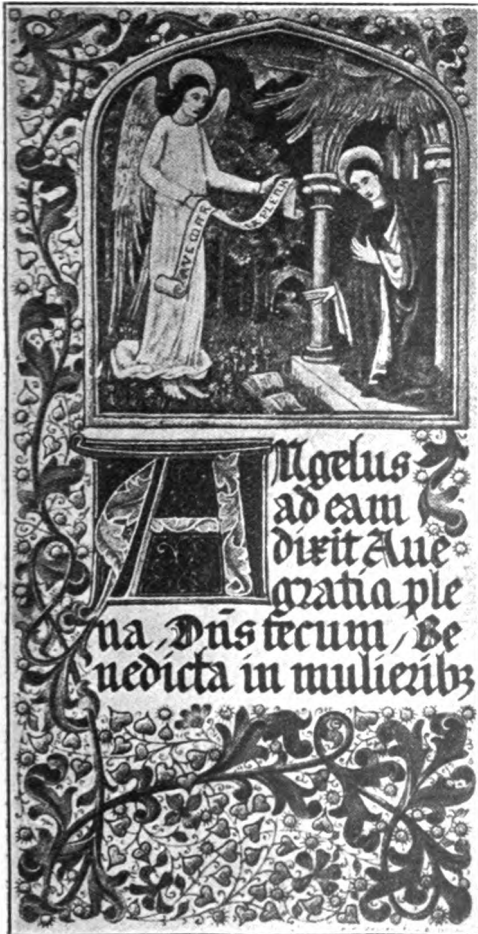 AVE
PLENA
ANgelus
ad eam
dixit Aue
gratia ple
na, Dn̄s tecum, Be
nedicta in mulieribꝫ